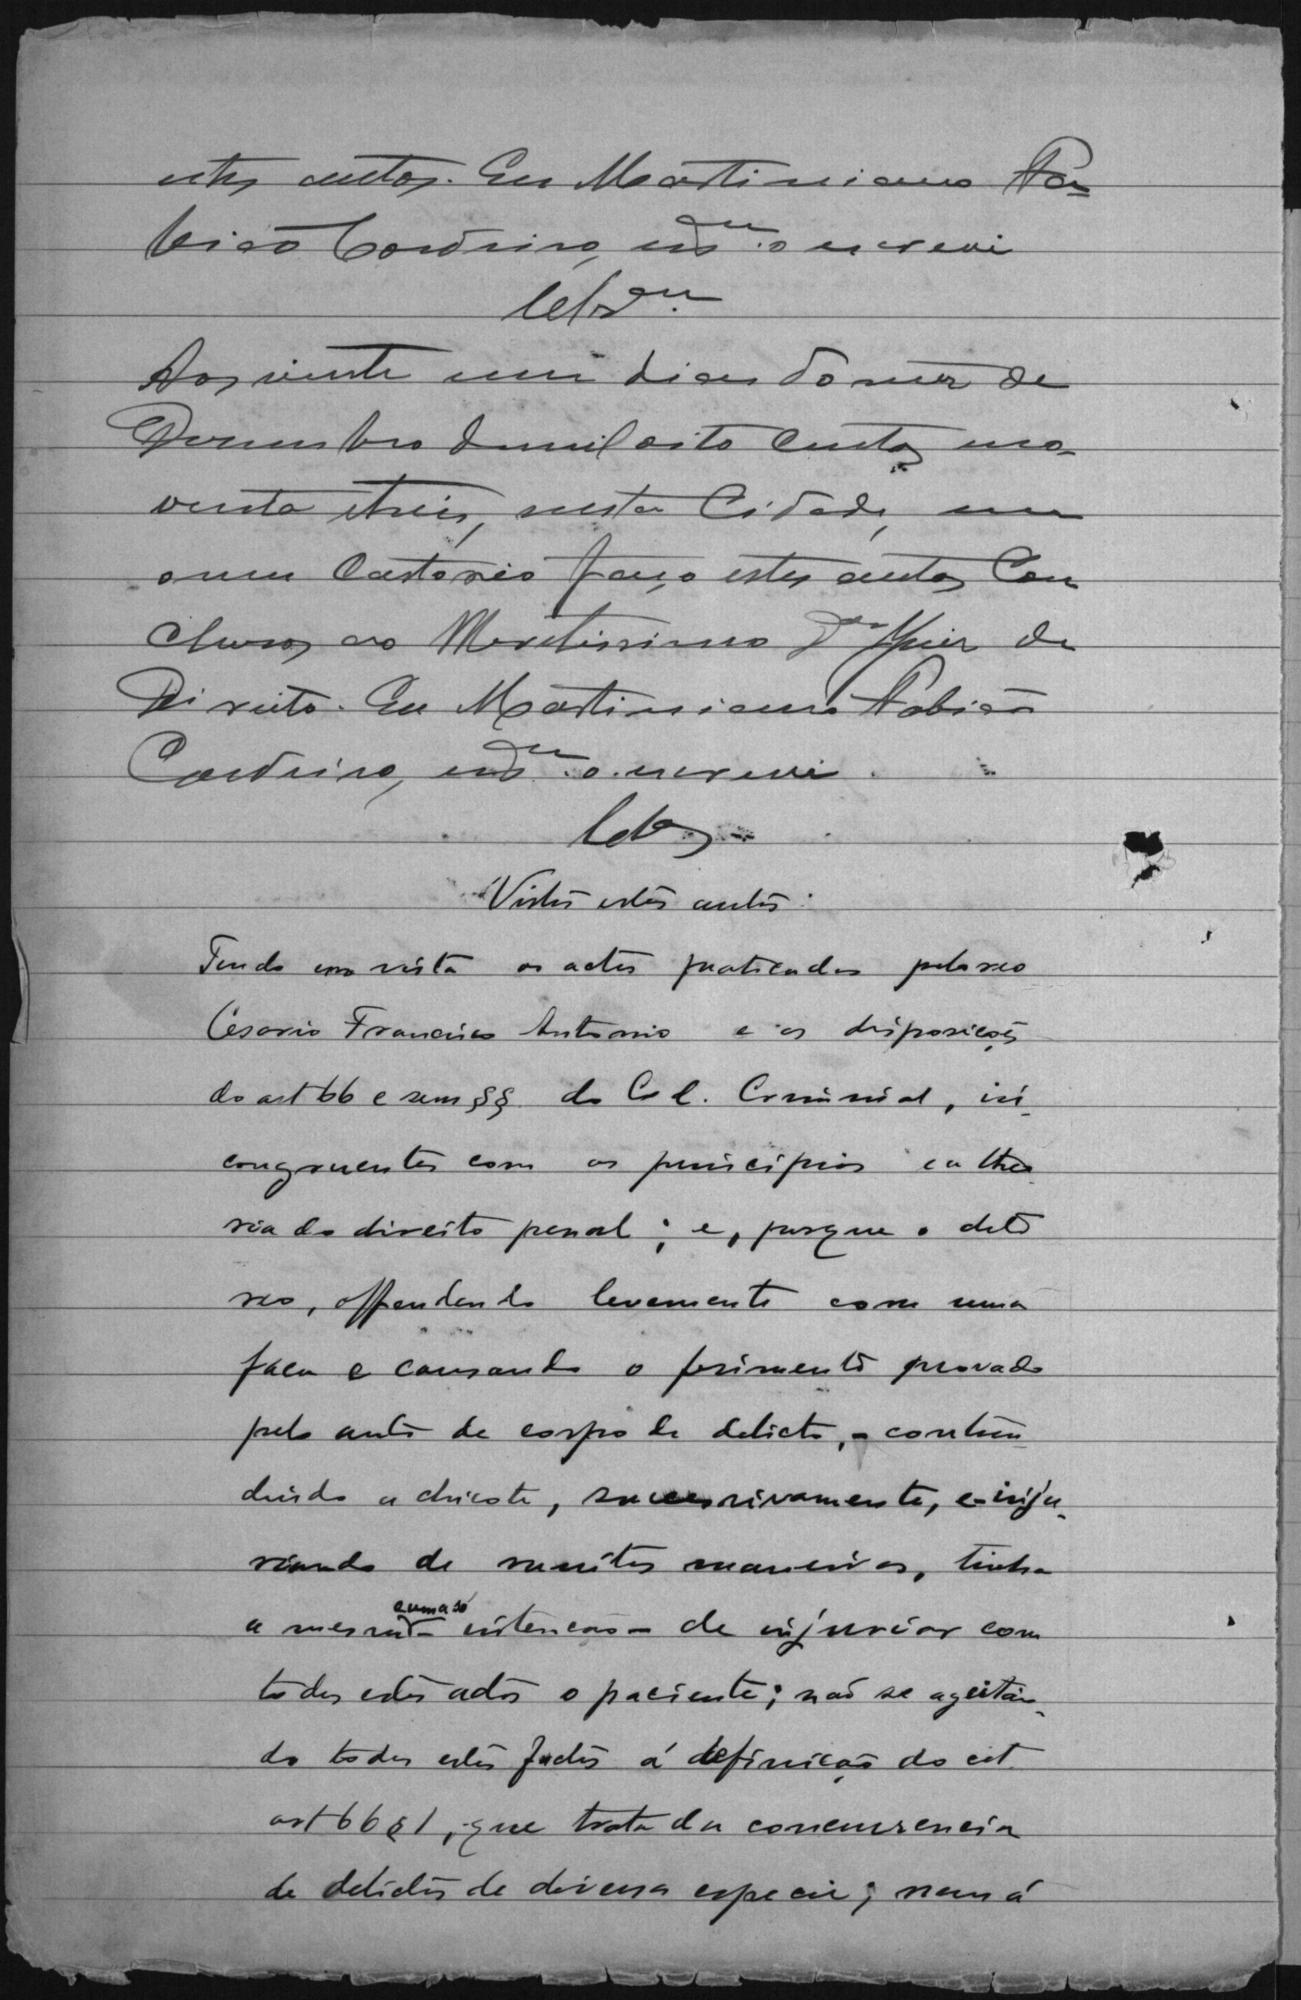 estes autos. Eu Martiniano Fa=
bião Cordeiro, esc.am o escrevi
Cls.am
Aos vinte um dias do mez de
Dezembro de mil oito centos no-
venta e treis, nesta Cidade, em
o meu Cartorio faço estes autos Con
clusos ao Meretissimo Dr Juiz de
Direito. Eu Martiniano Fabião
Cordeiro, esc.am o escrevi.
Clos
Vistos estes autos:
Tendo em vista os actos praticados pelo reo
Cesario Francisco Antonio e as disposições
do art 66 e seus §§ do Cod. Criminal, in-
congruentes com os principios e a theo
ria do direito penal; e, porque o dito
reo, offendendo levemente com uma
faca e causando o ferimento provado
pelo auto de corpo de delicto, e contun
dindo a chicote, successivamente, e inju-
riando de muitas maneiras, tinha
a mesma e uma só intenção de injuriar com
todos estes actos o paciente; não se ageitan-
do todos estes factos á definição do cit.
art 66 § 1, que trata da concurrencia
de delictos de diversa especie; nem á